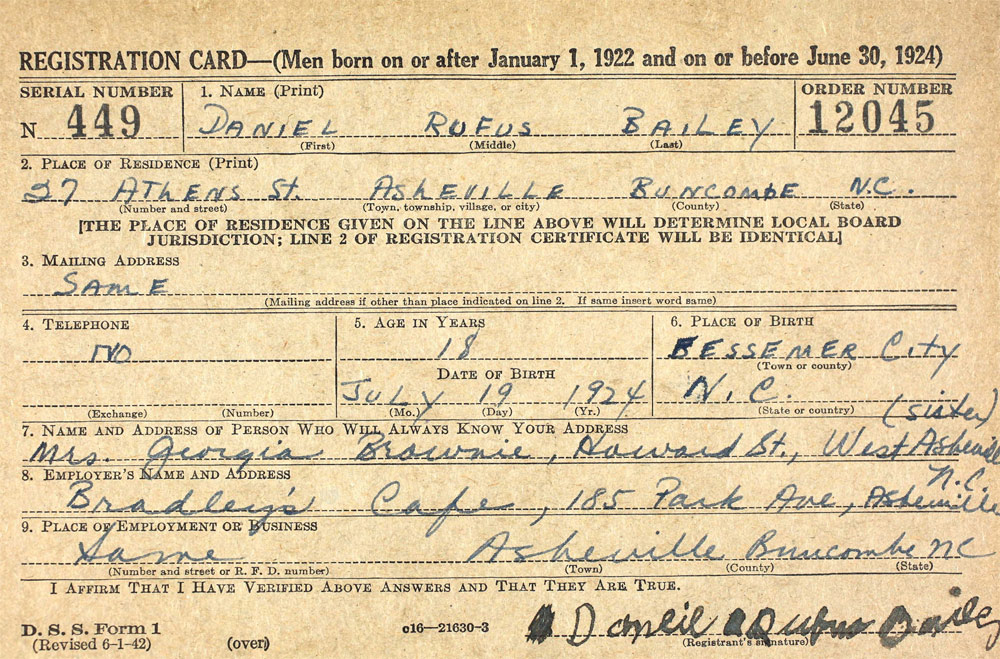 REGISTRATION CARD—(Men born on or after January 1, 1922 and on or before June 30, 1924)
SERIAL NUMBER 1. NAME (Print) ORDER NUMBER
N 449 DANIEL RUFUS BAILEY 12045
(First) (Middle) (Last)
2. PLACE OF RESIDENCE (Print)
27 ATHENS ST. ASHEVILLE BUNCOMBE N.C.
(Number and street) (Town, township, village, or city) (County) (State)
[THE PLACE OF RESIDENCE GIVEN ON THE LINE ABOVE WILL DETERMINE LOCAL BOARD
JURISDICTION; LINE 2 OF REGISTRATION CERTIFICATE WILL BE IDENTICAL]
3. MAILING ADDRESS
SAME
(Mailing address if other than place indicated on line 2. If same insert word same)
4. TELEPHONE 5. AGE IN YEARS 6. PLACE OF BIRTH
NO 18 BESSEMER CITY
(Town or county)
DATE OF BIRTH
JULY 19 1924 N.C.
(Exchange) (Number) (Mo.) (Day) (Yr.) (State or country)
(sister)
7. NAME AND ADDRESS OF PERSON WHO WILL ALWAYS KNOW YOUR ADDRESS
Mrs. Georgia Brownie, Howard St., West Asheville
N.C.
8. EMPLOYER'S NAME AND ADDRESS
Bradley's Cafe, 185 Park Ave, Asheville
9. PLACE OF EMPLOYMENT OR BUSINESS
Same Asheville Buncombe NC
(Number and street or R. F. D. number) (Town) (County) (State)
I AFFIRM THAT I HAVE VERIFIED ABOVE ANSWERS AND THAT THEY ARE TRUE.
D. S. S. Form 1
(Revised 6-1-42) (over) c16—21630-3 Rufus Bailey
(Registrant's signature)